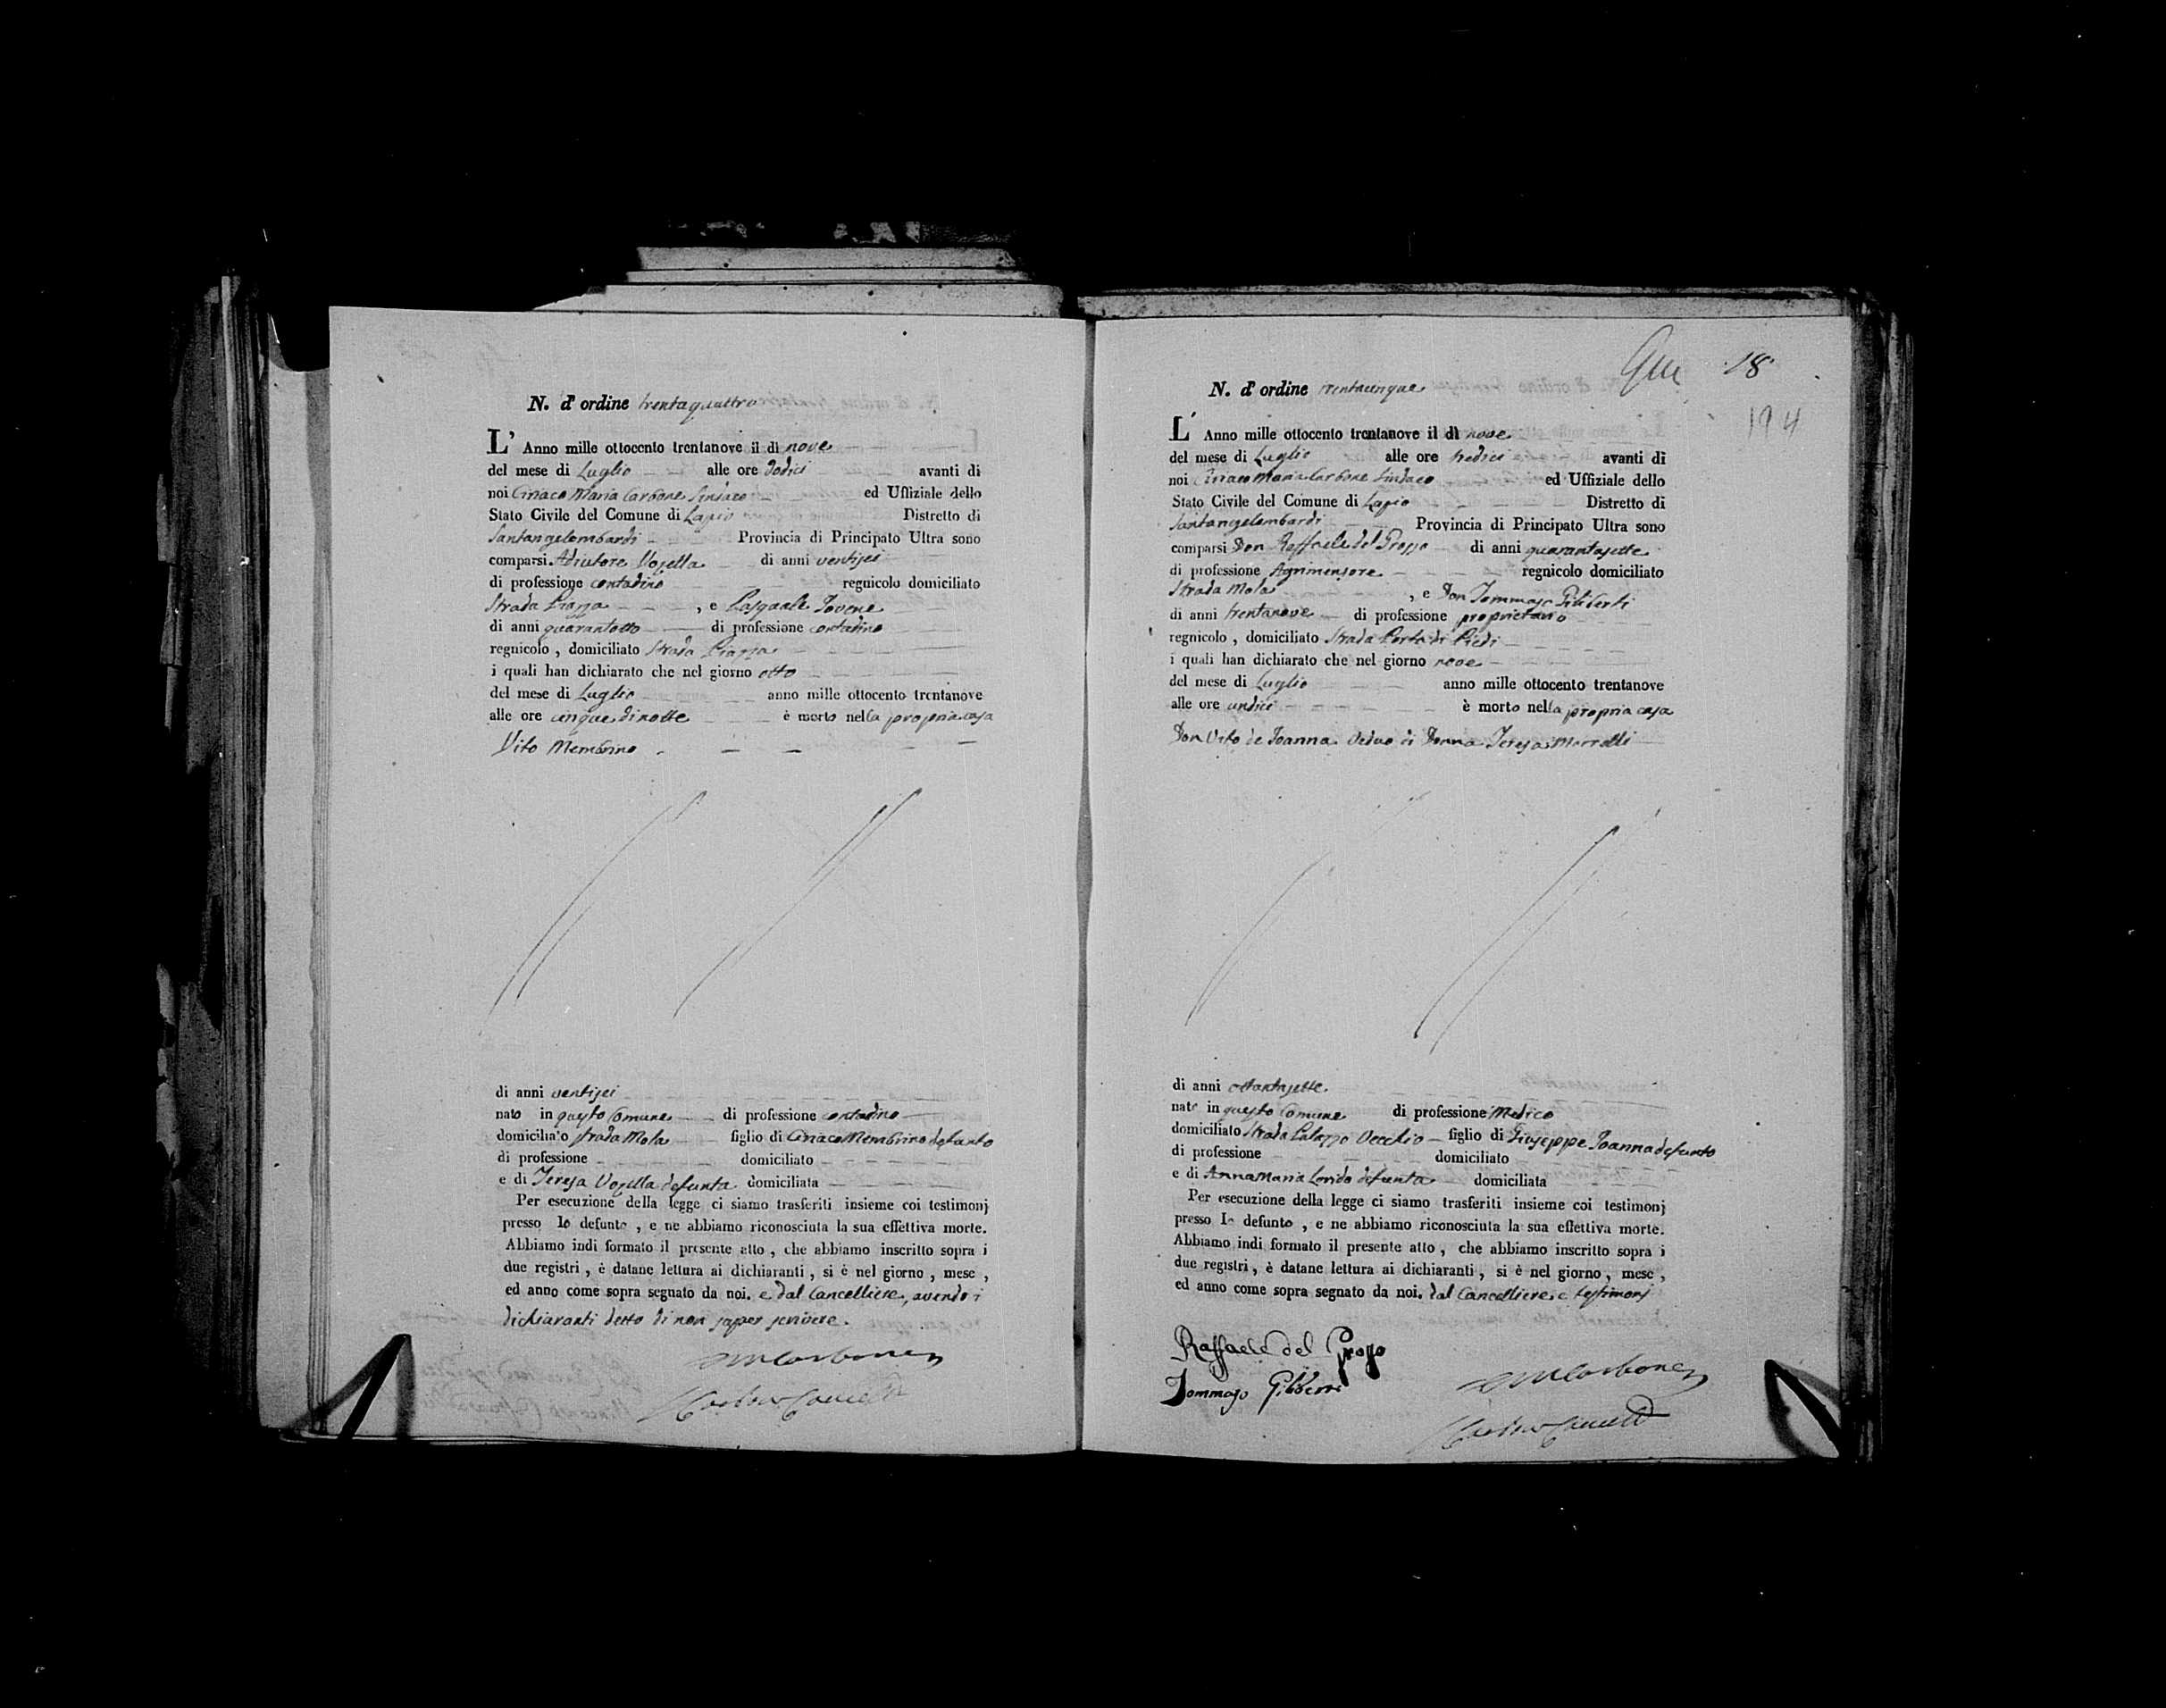 N. d'ordine trentaquattro
L' Anno mille ottocento trentanove il dì nove
del mese di Luglio alle ore dodici avanti di
noi Ciriaco Maria Carbone Sindaco ed Uffiziale dello
Stato Civile del Comune di Lapio Distretto di
Santangelombardi Provincia di Principato Ultra sono
comparsi Adiutore Vozella di anni ventisei
di professione contadino regnicolo domiciliato
Strada Piazza , e Pasquale Iovene
di anni quarantotto di professione contadino
regnicolo , domiciliato Strada Piazza
i quali han dichiarato che nel giorno otto
del mese di Luglio anno mille ottocento trentanove
alle ore cinque di notte è morto nella propria casa
Vito Membrino
di anni ventisei
nato in questo Comune di professione contadino
domiciliato strada Mola figlio di Ciriaco Membrino defunto
di professione domiciliato
e di Teresa Vozella defunta domiciliata
Per esecuzione della legge ci siamo trasferiti insieme coi testimonj
presso lo defunto , e ne abbiamo riconosciuta la sua effettiva morte.
Abbiamo indi formato il presente atto , che abbiamo inscritto sopra i
due registri , è datane lettura ai dichiaranti , si è nel giorno , mese ,
ed anno come sopra segnato da noi. e dal Cancelliere, avendo i
dichiaranti detto di non saper scrivere.
Carbone
18
194
N. d'ordine trentacinque
L' Anno mille ottocento trentanove il dì nove
del mese di Luglio alle ore tredici avanti di
noi Ciriaco Maria Carbone Sindaco ed Uffiziale dello
Stato Civile del Comune di Lapio Distretto di
Santangelombardi Provincia di Principato Ultra sono
comparsi Don Raffaele del Grosso di anni quarantasette
di professione Agrimensore regnicolo domiciliato
Strada Mola , e Don Tommaso Giliberti
di anni trentanove di professione proprietario
regnicolo , domiciliato Strada Porta di Piedi
i quali han dichiarato che nel giorno nove
del mese di Luglio anno mille ottocento trentanove
alle ore undici è morto nella propria casa
Don Vito de Ioanna Vedovo di Donna Teresa Morrelli
di anni ottantasette
nato in questo Comune di professione Medico
domiciliato Strada Palazzo Vecchio figlio di Giuseppe Ioanna defunto
di professione domiciliato
e di Anna Maria defunta domiciliata
Per esecuzione della legge ci siamo trasferiti insieme coi testimonj
presso lo defunto , e ne abbiamo riconosciuta la sua effettiva morte.
Abbiamo indi formato il presente atto , che abbiamo inscritto sopra i
due registri , è datane lettura ai dichiaranti , si è nel giorno , mese ,
ed anno come sopra segnato da noi. dal Cancelliere e testimonj
Raffaele del Grosso
Tommaso Giliberti
Carbone